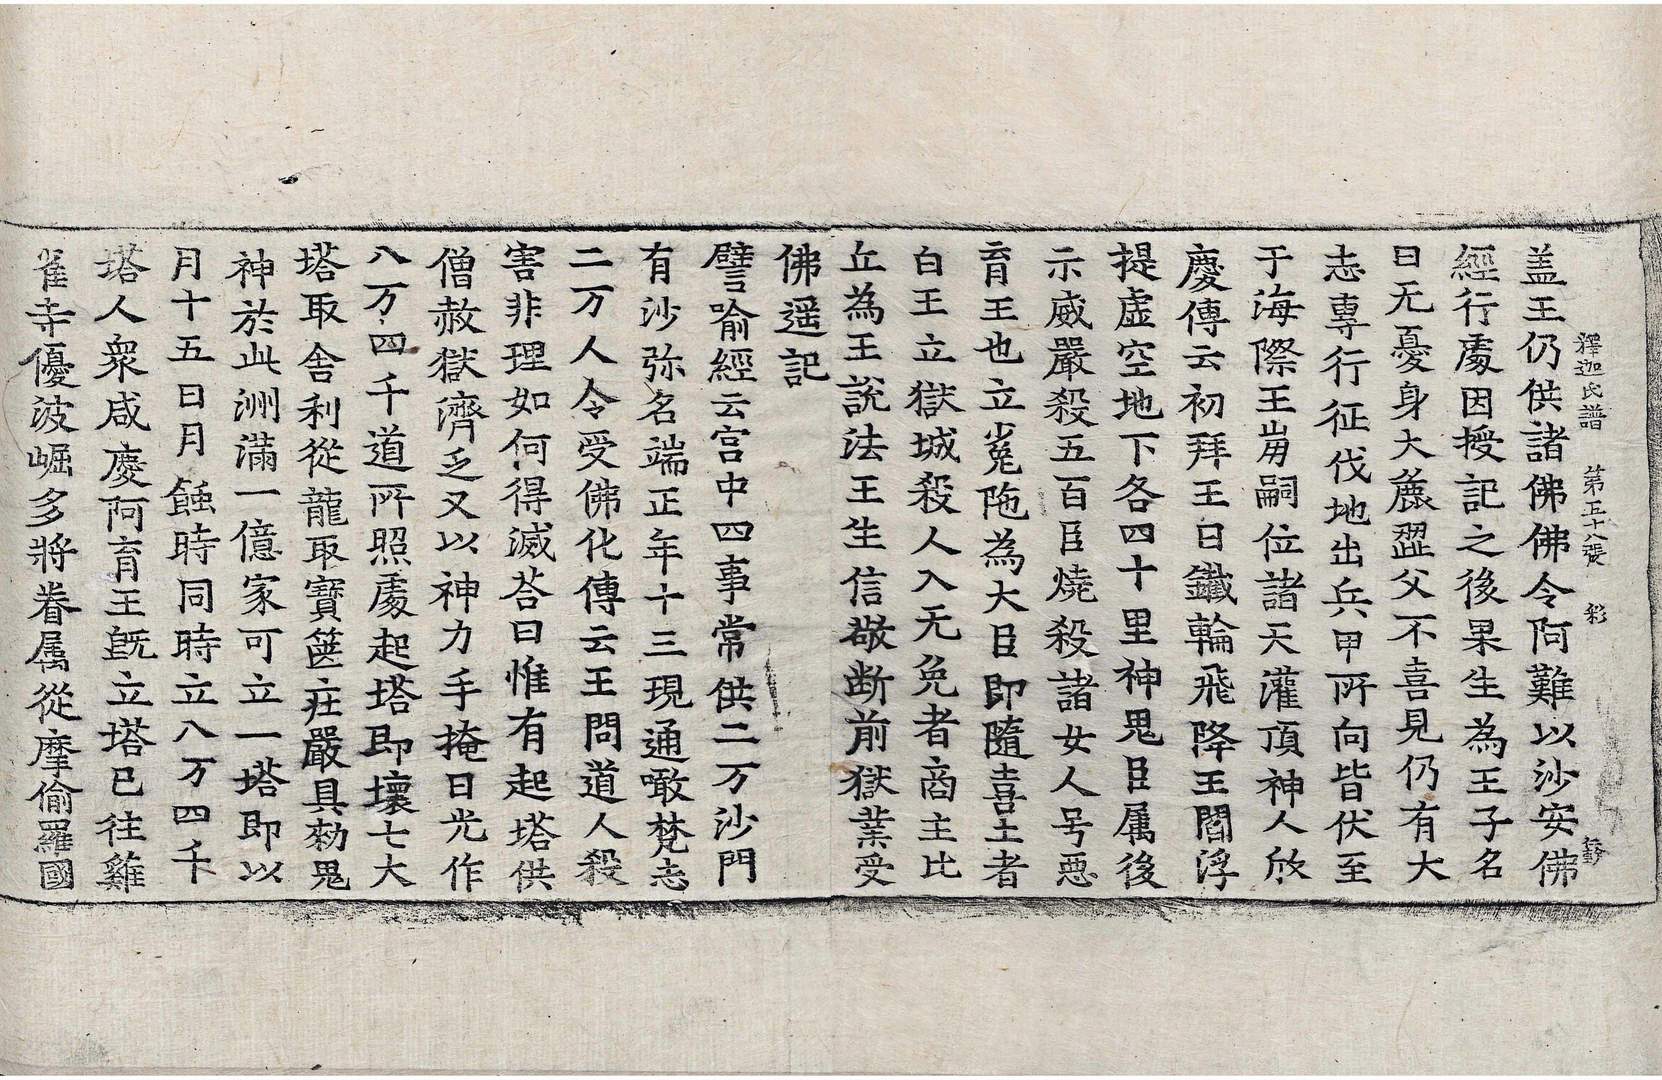 釋迦氏譜 第五十八張 彩
盖王仍供諸佛佛令阿難以沙安佛
經行處因授記之後果生為王子名
曰无憂身大麁澀父不喜見仍有大
志專行征伐地出兵甲所向皆伏至
于海際王崩嗣位諸天灌頂神人欣
慶傳云初拜王日鐵輪飛降王閻浮
提虛空地下各四十里神鬼臣属後
示威嚴殺五百臣燒殺諸女人号惡
育王也立㝹陁為大臣即隨喜土者
白王立獄城殺人入无免者商主比
丘為王說法王生信敬断前獄業受
佛遥記
譬喻經云宫中四事常供二万沙門
有沙弥名端正年十三現通噉梵志
二万人令受佛化傳云王問道人殺
害非理如何得滅荅曰惟有起塔供
僧赦獄濟乏又以神力手掩日光作
八万四千道所照處起塔即壞七大
塔取舎利從龍取寶篋莊嚴具勑鬼
神於此洲滿一億家可立一塔即以
月十五日月蝕時同時立八万四千
塔人衆咸慶阿育王旣立塔已往雞
雀寺優波崛多將眷属從摩偷羅國